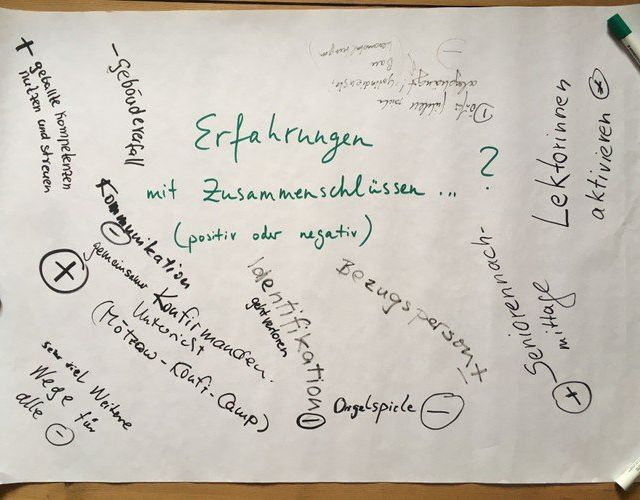 Erfahrungen
mit Zusammenschlüssen ... ?
(positiv oder negativ)
+ geballte Kompetenzen
nutzen und streuen
- Gebäudeverfall
Kommunikation
-
+ gemeinsamer
Konfirmanden.
Unterricht
(Mötzow-Konfi-Camp)
sehr viel Weitere
Wege für
alle -
Identifikation -
geht verloren
Bezugsperson +
-
Orgelspiele -
Seniorennach-
mittage +
Lektorinnen
aktivieren +
- Dörfer fühlen sich
abgehängt!